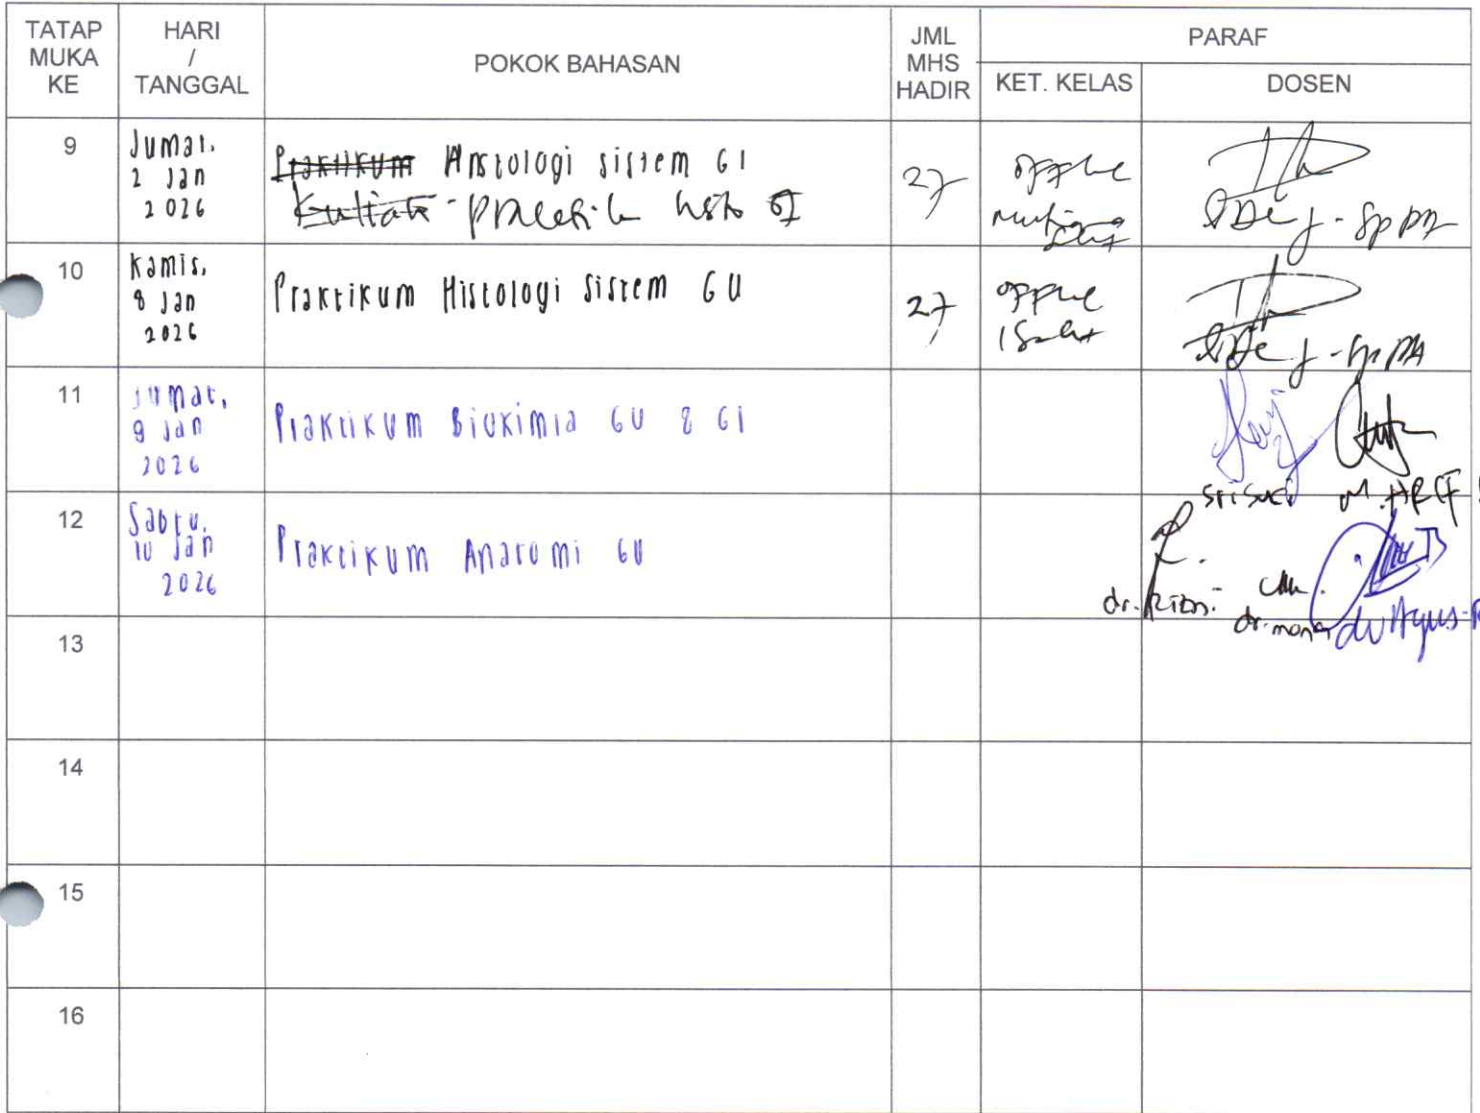 TATAP MUKA KE
HARI / TANGGAL
POKOK BAHASAN
JML MHS HADIR
PARAF
KET. KELAS
DOSEN
9
Jumat, 2 Jan 2026
Praktikum Histologi sistem GI
Kuliah
27
10
Kamis, 8 Jan 2026
Praktikum Histologi Sistem GU
27
11
Jumat, 9 Jan 2026
Praktikum Biokimia GU & GI
Sri Suci
12
Sabtu, 10 Jan 2026
Praktikum Anatomi GU
13
14
15
16